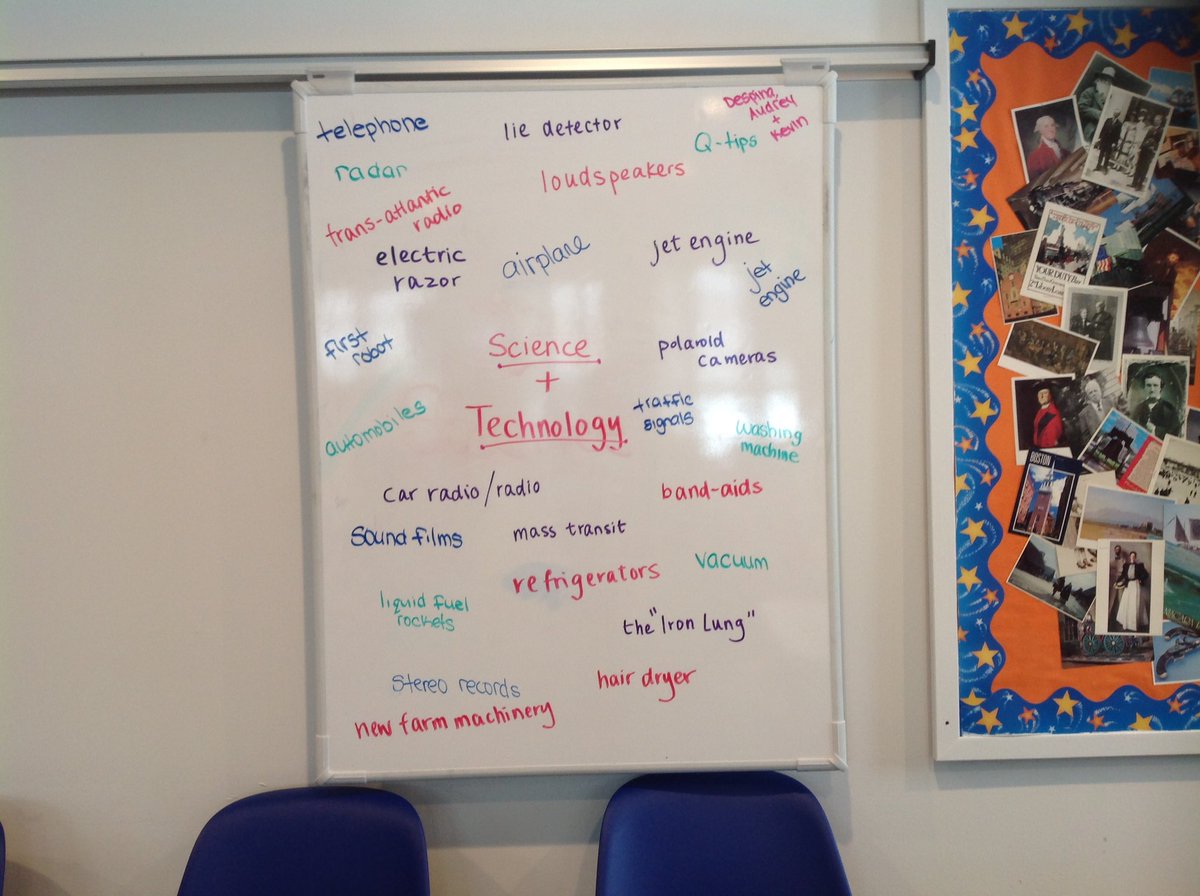 telephone
lie detector
Despina,
Audrey
+
Kevin
Q-tips
radar
loudspeakers
trans-atlantic
radio
electric
razor
airplane
jet engine
jet
engine
first
robot
Science
+
Technology
polaroid
cameras
traffic
signals
automobiles
washing
machine
car radio/radio
band-aids
sound films
mass transit
vacuum
refrigerators
liquid fuel
rockets
the "Iron Lung"
stereo records
hair dryer
new farm machinery
YOUR DUTY
BOSTON